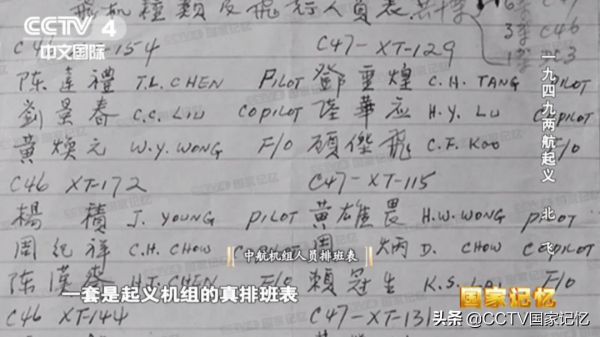 CCTV 4
中文国际
飛機種類及飛行人員表
C46
3架 C46
154 C47-XT-129
陳達禮 T.L. CHEN PILOT 鄧重煌 C.H. TANG PILOT
劉景春 C.C. LIU COPILOT 陸華应 H.Y. LU COPILOT
黄煥元 W.Y. WONG F/O 顧傑飛 C.F. KOO F/O
C46 XT-172 C47-XT-115
楊積 J. YOUNG PILOT 黄雄畏 H.W. WONG PILOT
周紀祥 C.H. CHOW COPILOT 周炳 D. CHOW COPILOT
陳漢 H.T. CHEN F/O 賴冠生 K.S. F/O
C46 XT-144 C47-XT-131
一九四九两航起义 北飞
中航机组人员排班表
一套是起义机组的真排班表
国家记忆
头条 @CCTV国家记忆